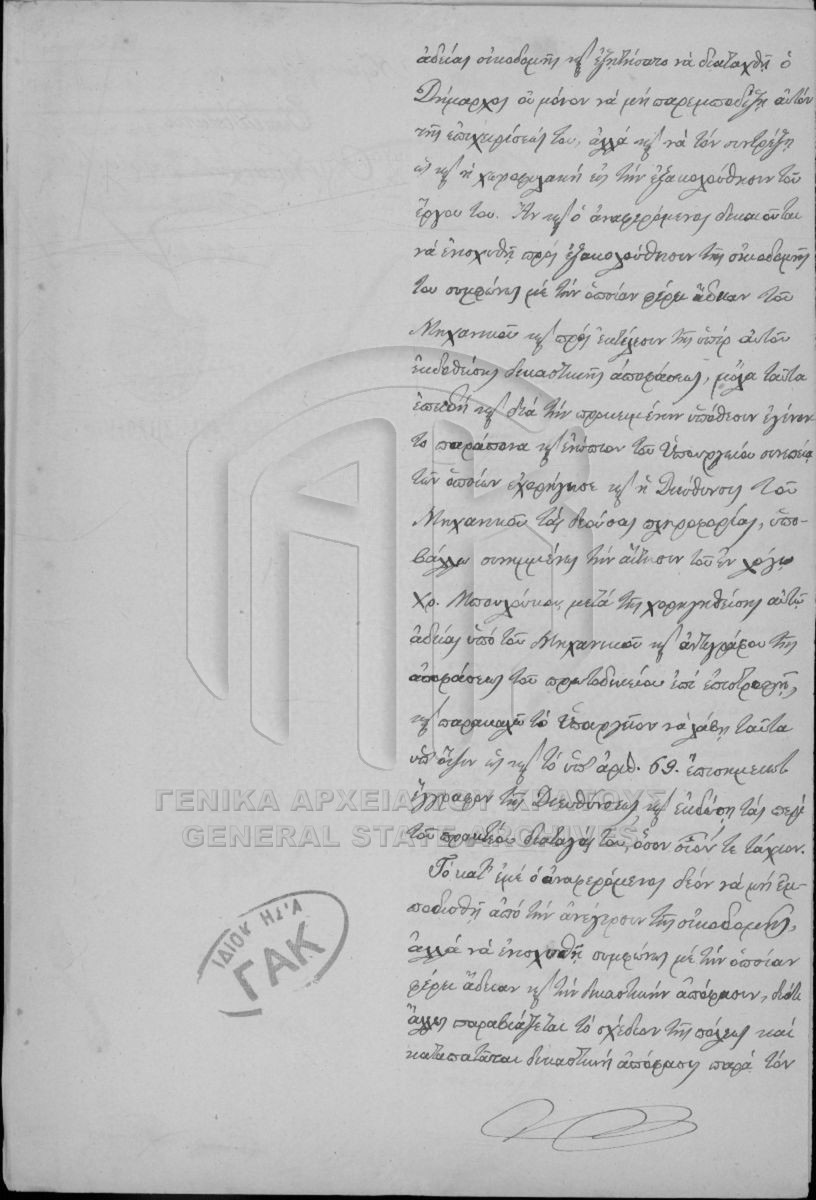 ἀδείας οἰκοδομῆς καὶ ἐζητήσατο νὰ διαταχθῇ ὁ
Δήμαρχος οὐ μόνον νὰ μὴ παρεμποδίζῃ αὐτὸν
τῆς ἐπιχειρίσεώς του, ἀλλὰ καὶ νὰ τὸν συντρέξῃ
ὡς καὶ ἡ χωροφυλακὴ εἰς τὴν ἐξακολούθησιν τοῦ
ἔργου του. Ἂν καὶ ὁ ἀναφερόμενος δικαιοῦται
νὰ ἐνισχυθῇ πρὸς ἐξακολούθησιν τῆς οἰκοδομῆς
του συμφώνως μὲ τὴν ὁποίαν φέρει ἄδειαν τοῦ
Μηχανικοῦ καὶ πρὸς ἐκτέλεσιν τῆς ὑπὲρ αὐτοῦ
ἐκδοθείσης δικαστικῆς ἀποφάσεως, μόλα ταῦτα
ἐπειδὴ καὶ διὰ τὴν προκειμένην ὑπόθεσιν ἐγένον
το παράπονα καὶ ἐνώπιον τοῦ Ὑπουργείου συνεπείᾳ
τῶν ὁποίων ἐχορήγησε καὶ ἡ Διεύθυνσις τοῦ
Μηχανικοῦ τὰς δεούσας πληροφορίας, ὑπο-
βάλλω συνημμένως τὴν αἴτησιν τοῦ ἐν λόγῳ
Χρ. μετὰ τῆς χορηγηθείσης αὐτῷ
ἀδείας ὑπὸ τοῦ Μηχανικοῦ καὶ ἀντιγράφου τῆς
ἀποφάσεως τοῦ πρωτοδικείου ἐπὶ ἐπιστροφῇ,
καὶ παρακαλῶ τὸ Ὑπουργεῖον νὰ λάβῃ ταῦτα
ὑπ' ὄψιν ὡς καὶ τὸ ὑπ' ἀριθ. 69. ἐπισημειωτ
ἔγγραφον τῆς Διευθύνσεως καὶ ἐκδώσῃ τὰς περὶ
τοῦ πρακτέου διαταγάς του, ὅσον οἷόν τε τάχιον.
Τὸ κατ' ἐμὲ ὁ ἀναφερόμενος δέον νὰ μὴ ἐμ-
ποδισθῇ ἀπὸ τὴν ἀνέγερσιν τῆς οἰκοδομῆς,
ἀλλὰ νὰ ἐνισχυθῇ συμφώνως μὲ τὴν ὁποίαν
φέρει ἄδειαν καὶ τὴν δικαστικὴν ἀπόφασιν, διότι
ἄλλως παραβιάζεται τὸ σχέδιον τῆς πόλεως καὶ
καταπατᾶται δικαστικὴ ἀπόφασις παρὰ τὸν
ΓΕΝΙΚΑ ΑΡΧΕΙΑ ΤΟΥ ΚΡΑΤΟΥΣ
GENERAL STATE ARCHIVES
ΓΑΚ